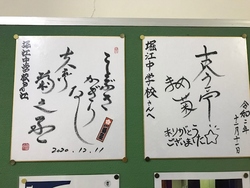 堀江中学校さんへ
古今亭
まめ菊
ありがとう
ございました!
令和二年
十二月十一日
ことぶき
かぎり
なし
古今亭
菊之丞
堀江中学校さん江
2020.12.11